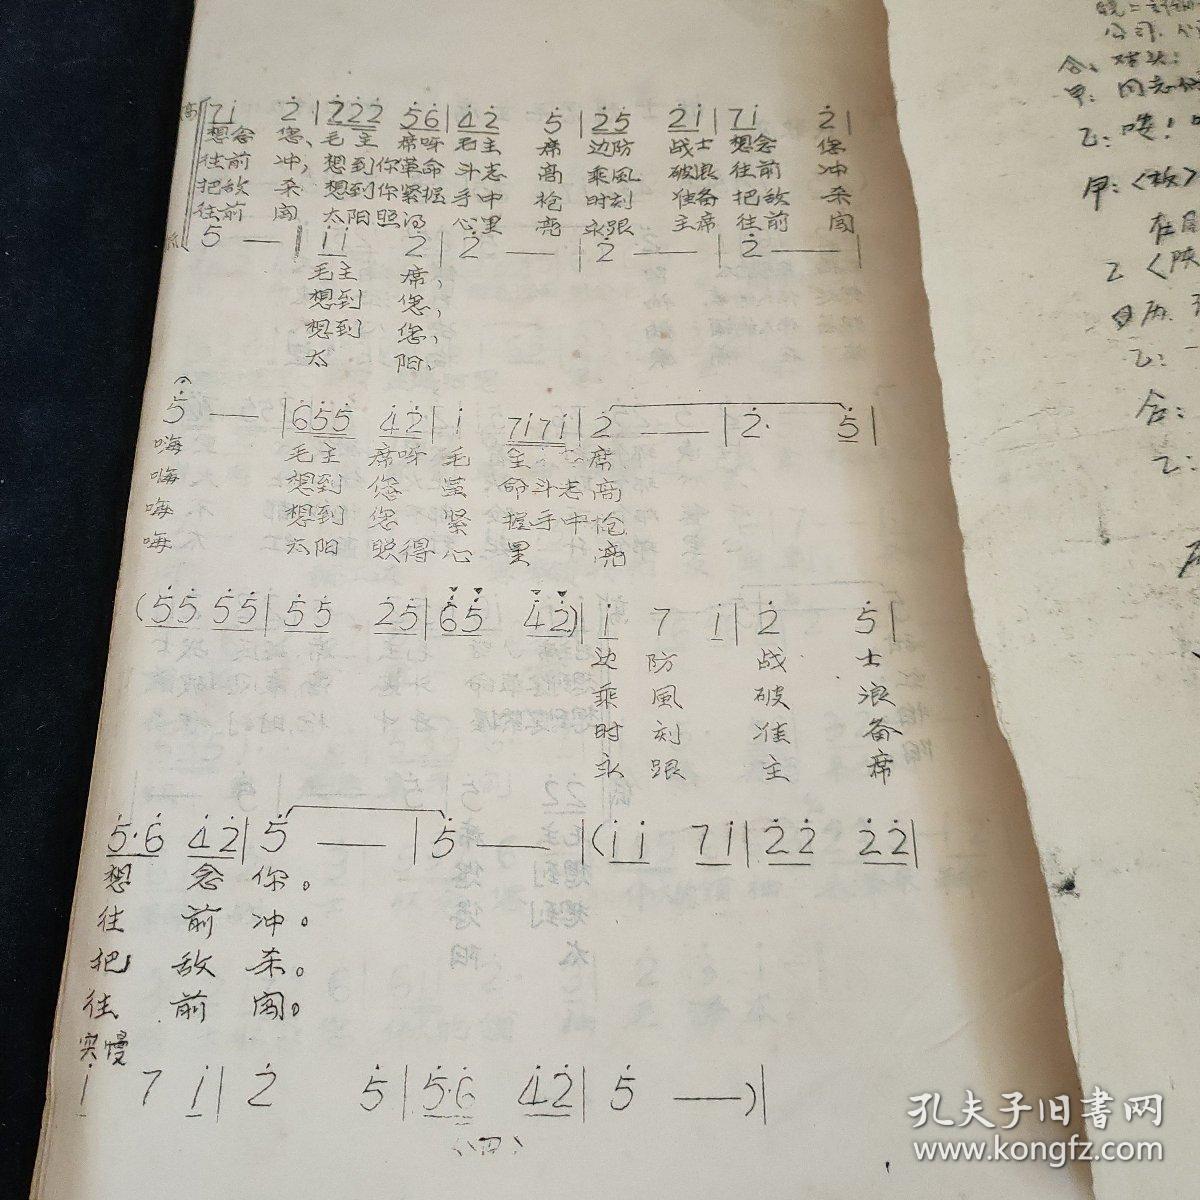 高 7i 2̇ | 2̇2̇2̇ 5̇6̇ | 4̇2̇ 5̇ | 2̇5̇ 2̇i | 7i 2̇ |
想念 您、 毛 主 席呀 毛主 席 边防 战士 想念 您
往前 冲, 想到你革命 斗志 高 乘風 破浪 往前 冲
把敌 杀 想到你紧握 手中 枪 时刻 准备 把敌 杀
往前 闯 太阳照的 心里 亮 永跟 主席 往前 闯
5̇ — | ii 2̇ | 2̇ — | 2̇ — | 2̇ — |
毛主 席,
想到 您,
想到 您,
太 阳、
5̇ — | 6̇5̇5̇ 4̇2̇ | i 7i7i | 2̇ — | 2̇· 5̇ |
嗨 毛主 席呀 毛 主 席
嗨 想到 您 革 命斗志 高
嗨 想到 您 紧 握手中 枪
嗨 太阳 照得 心 里 亮
(5̇5̇ 5̇5̇ | 5̇5̇ 2̇5̇ | 6̇5̇ 4̇2̇) | i 7 i | 2̇ 5̇ |
边 防 战 士
乘 風 破 浪
时 刻 准 备
永 跟 主 席
5̇·6̇ 4̇2̇ | 5̇ — | 5̇ — | (ii 7i | 2̇2̇ 2̇2̇ |
想 念 你。
往 前 冲。
把 敌 杀。
往 前 闯。
突慢
i 7 i | 2̇ 5̇ | 5̇·6̇ 4̇2̇ | 5̇ — ) |
(四)
合:
甲: 同志们
乙:
甲:
乙
乙:
合:
乙:
孔夫子旧书网
www.kongfz.com